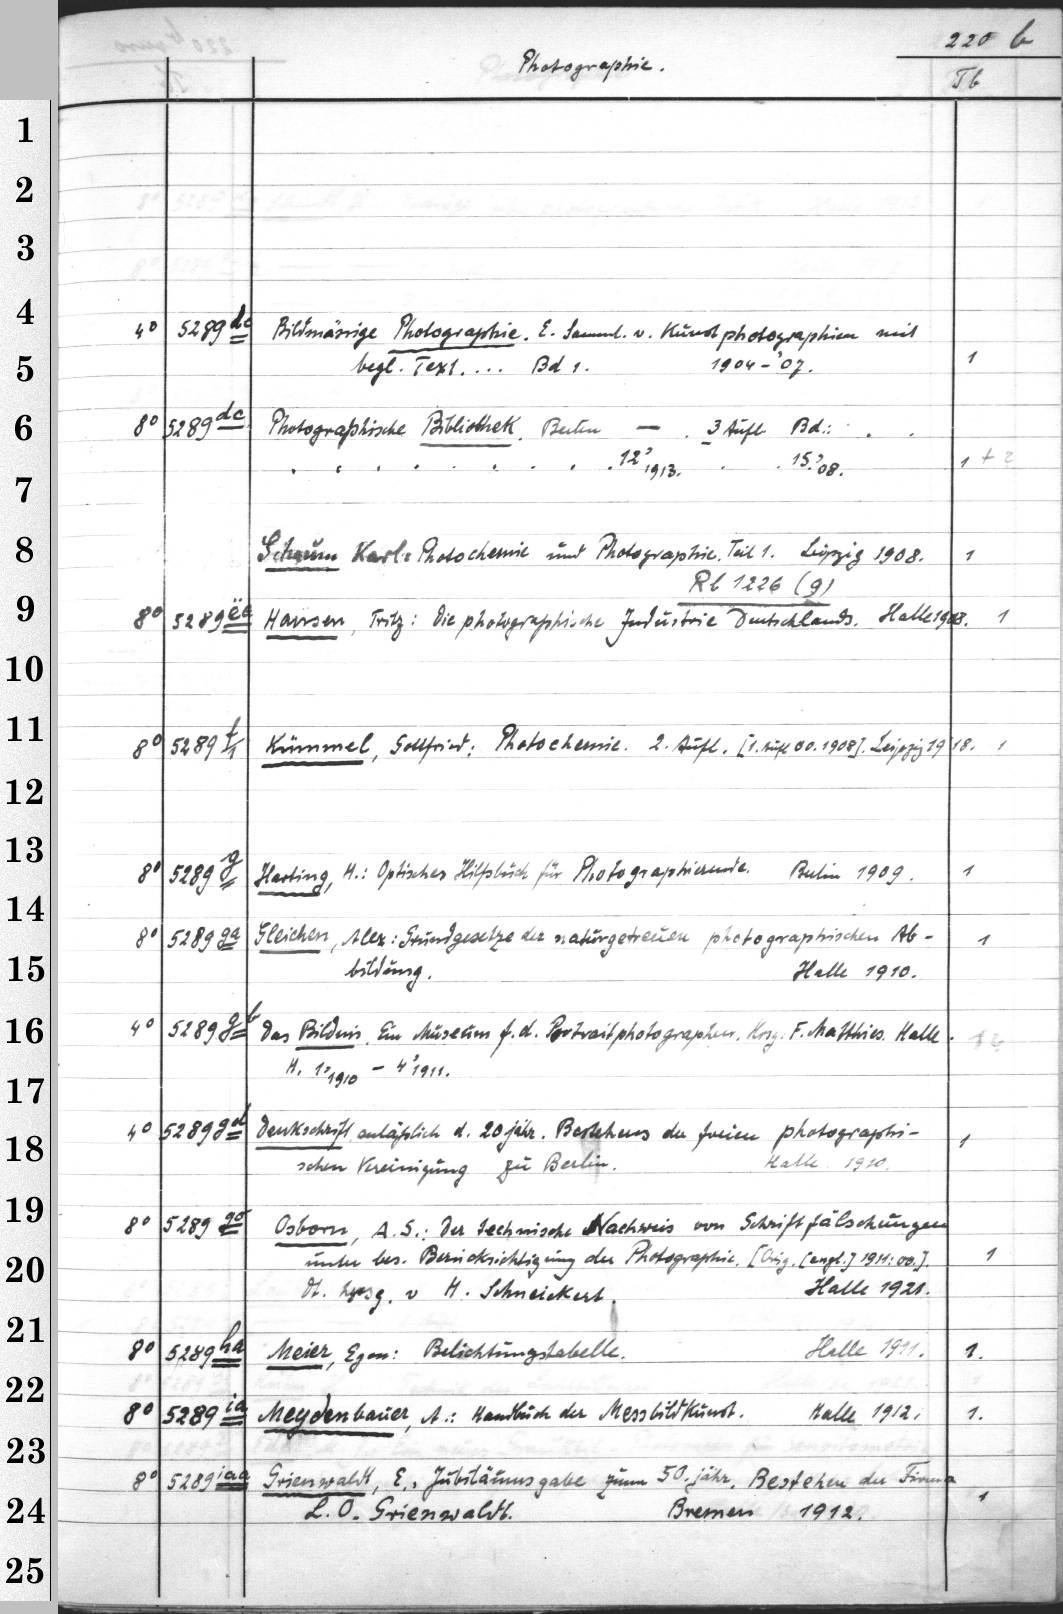 220 b
Photographie.
Tb
1
2
3
4
4° 5289 dc Bildmässige Photographie. E. Samml. v. Kunstphotographien mit
5 begl. Text. ... Bd 1. 1904-'07. 1
6 8° 5289 dc Photographische Bibliothek. Berlin — . 3 Aufl. Bd.: . .
. . . . . . . . . 12'1913. . . 15.'08. 1 + 2
7
8 Schaum Karl: Photochemie und Photographie. Teil 1. Leipzig 1908. 1
Rb 1226 (g)
9 8° 5289 ëe Hansen, Fritz: Die photographische Industrie Deutschlands. Halle 1908. 1
10
11 8° 5289 f/1 Kümmel, Gottfried: Photochemie. 2. Aufl. [1. Aufl 00. 1908]. Leipzig 1918. 1
12
13 8° 5289 g Harting, H.: Optisches Hilfsbuch für Photographierende. Berlin 1909. 1
14
8° 5289 ga Gleichen, Alex: Grundgesetze der naturgetreuen photographischen Ab-
15 bildung. Halle 1910. 1
16 4° 5289 gb Das Bildnis. Ein Museum f. d. Portraitphotographen. Hrsg. F. Matthies. Halle.
H. 1'1910 - 4'1911.
17
4° 5289 gd Denkschrift anläßlich d. 20jähr. Bestehens der freien photographi-
18 schen Vereinigung zu Berlin. Halle 1910. 1
19 8° 5289 go Osborn, A. S.: Der technische Nachweis von Schriftfälschungen
unter bes. Berücksichtigung der Photographie. [Orig. [engl.] 1911: 00.]. 1
20 Dt. hrsg. v H. Schneickert. Halle 1921.
21 8° 5289 ha Meier, Egon: Belichtungstabelle. Halle 1911. 1.
22 8° 5289 ia Meydenbauer, A.: Handbuch der Messbildkunst. Halle 1912. 1.
23 8° 5289 iaa Grienwaldt, E., Jubiläumsgabe zum 50. jähr. Bestehen der Firma
24 L. O. Grienwaldt. Bremen 1912. 1
25